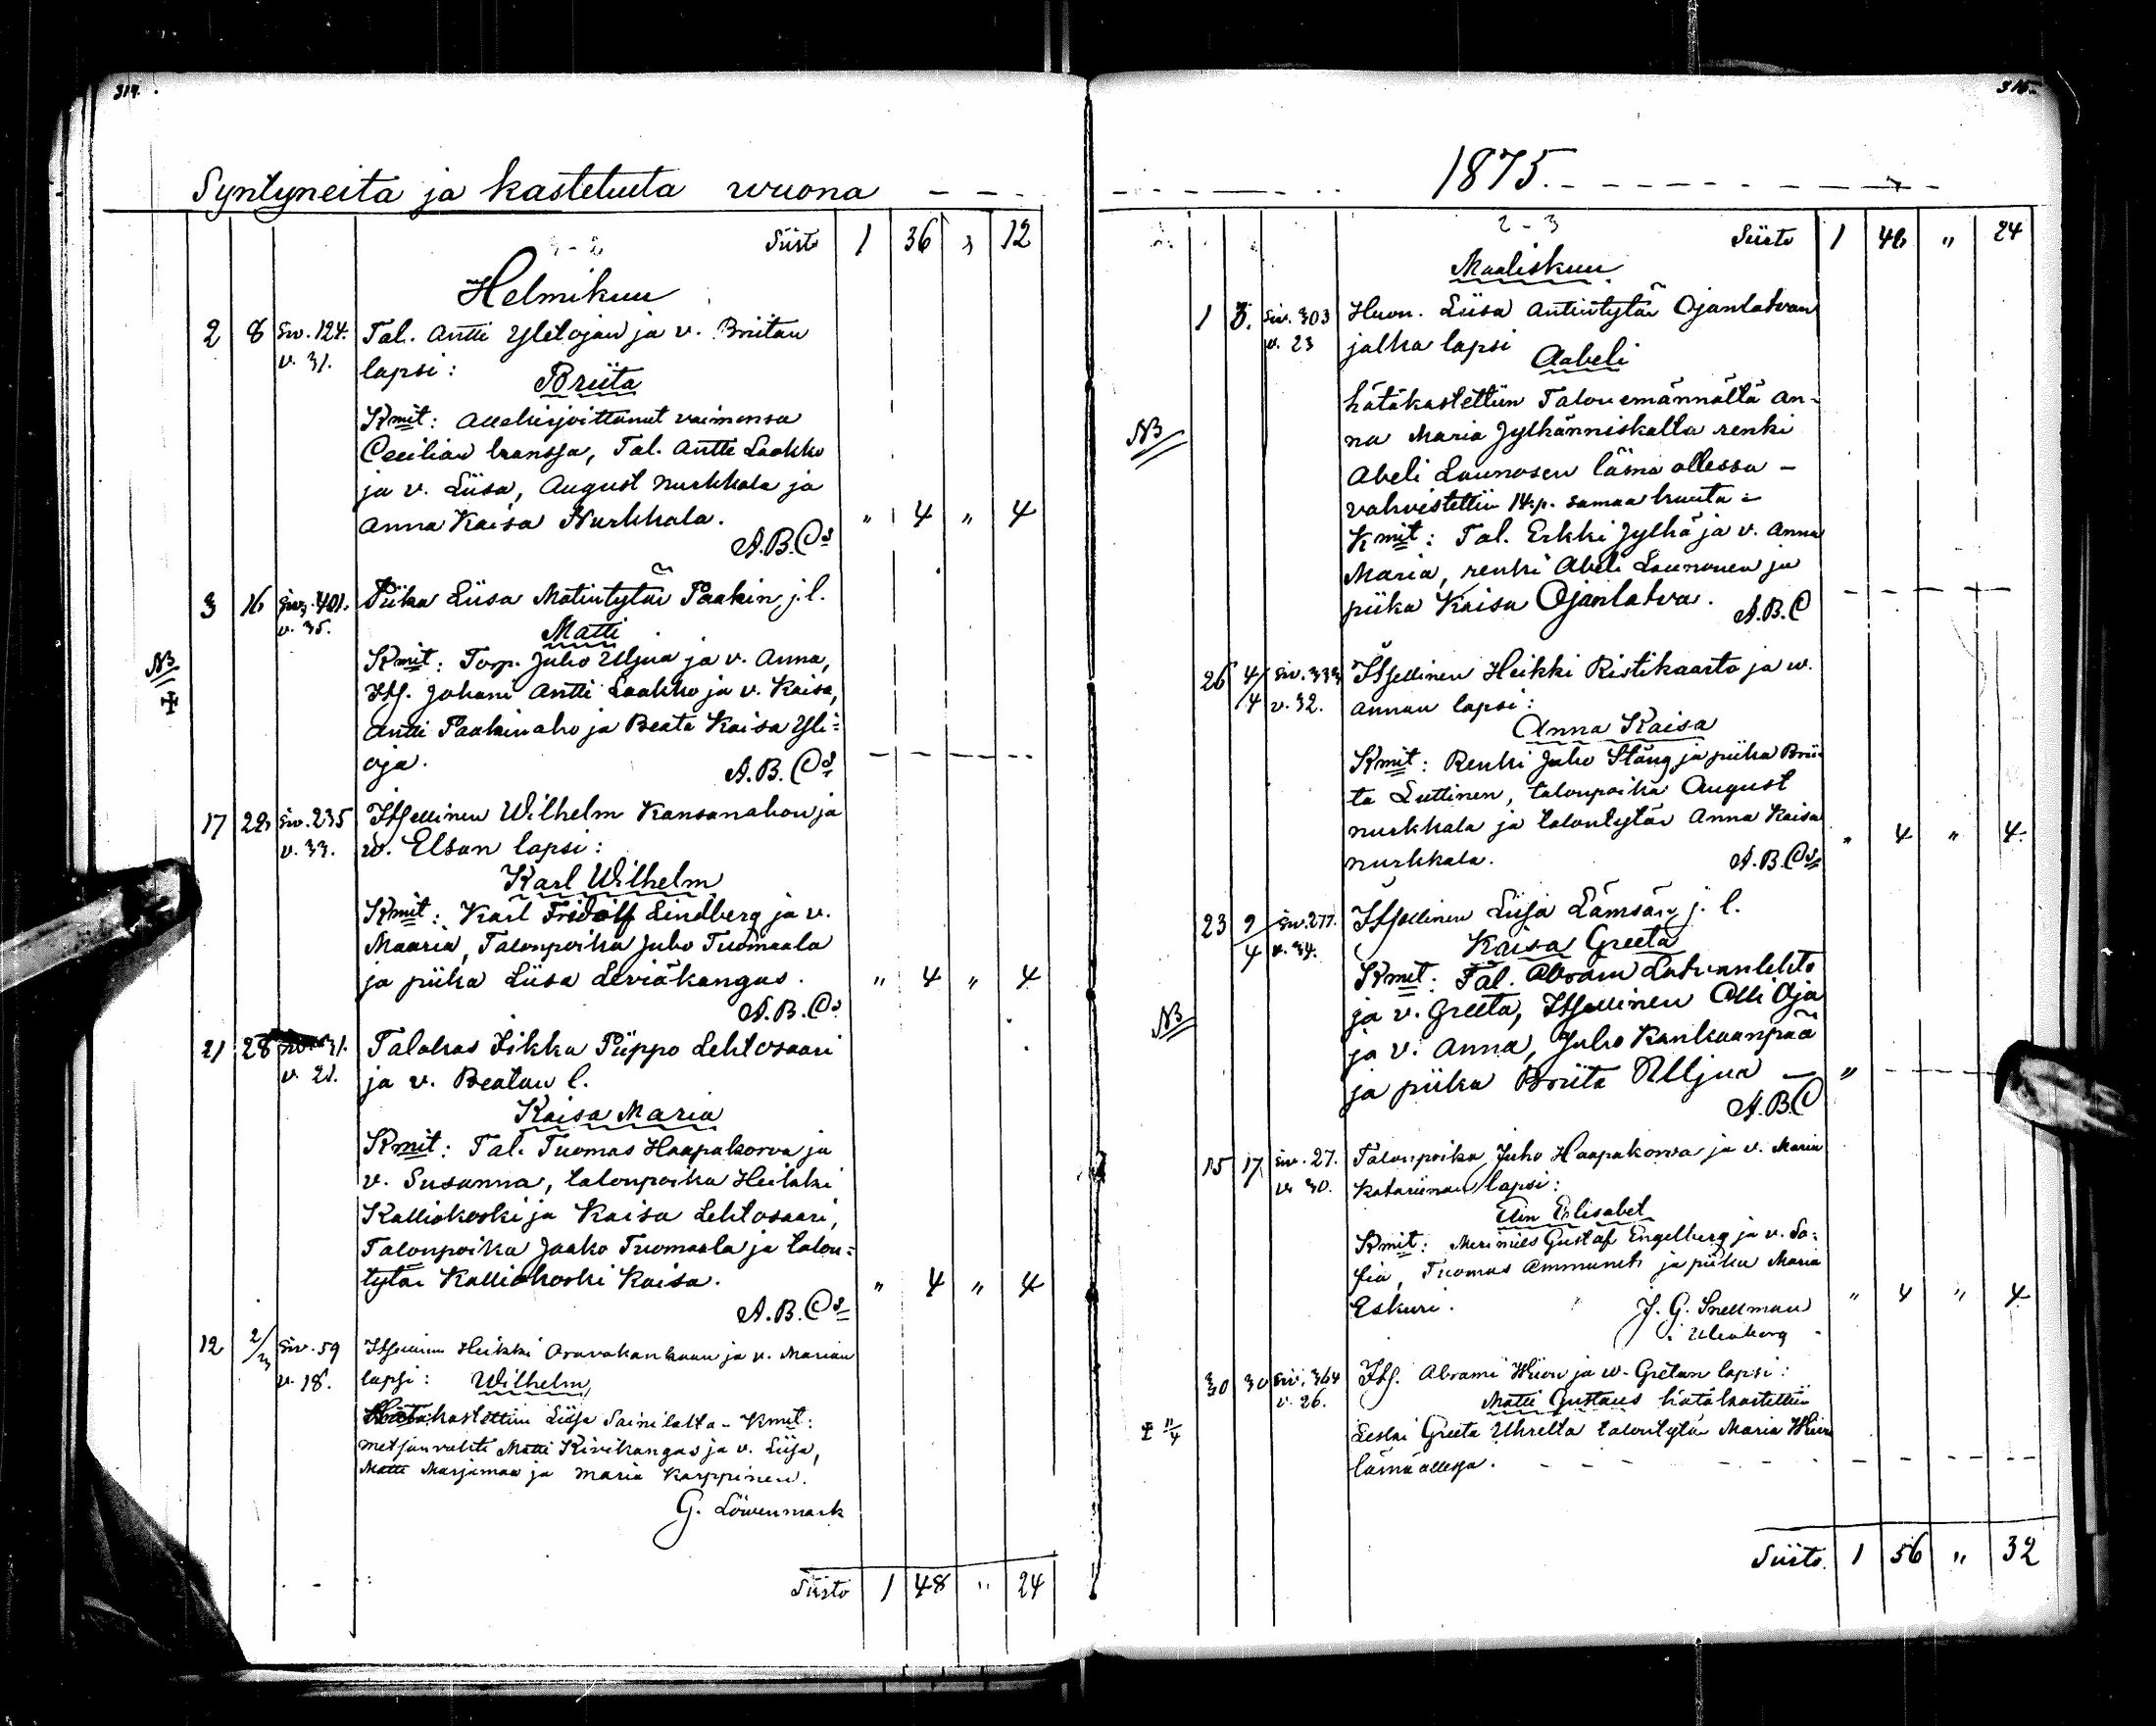 314.
Syntyneitä ja kastetuita wuona
Siirto 1 36 " 12
Helmikuu
2 8 Siv. 124. Tal. Antti Yletojan ja v. Briitan
v. 31. lapsi:
Briita
Kmit: Allekirjoittanut vaimonsa
Cecilian kanssa, Tal. Antti Laakko
ja v. Liisa, August Nurkkala ja
Anna Kaisa Nurkkala. " 4 " 4
A.B.Cs
3 16 Siv. 401. Piika Liisa Matintytär Paakin j.l.
v. 35.
Matti
NB Kmit: Torp. Juho Uljua ja v. Anna,
Its. Johani Antti Laakko ja v. Kaisa,
Antti Paakinaho ja Beata Kaisa Yli=
oja.
A.B.Cs
17 28 Siv. 235 Itsellinen Wilhelm Kansanahon ja
v. 33. w. Elsan lapsi:
Karl Wilhelm
Kmit: Karl Fridolf Lindberg ja v.
Maaria, Talonpoika Juho Tuomaala
ja piika Liisa Leviäkangas. " 4 " 4
A.B.Cs
21 28 31. Talokas Iikka Piippo Lehtosaari
v. 21. ja v. Beatan l.
Kaisa Maria
Kmit: Tal. Tuomas Haapakorva ja
v. Susanna, talonpoika Heikki
Kalliokoski ja Kaisa Lehtosaari,
Talonpoika Jaako Tuomaala ja talon=
tytär Kalliokoski Kaisa. " 4 " 4
A.B.Cs
12 2/3 Siv. 59 Itsellinen Heikki Oravakankaan ja v. Marian
v. 18. lapsi: Wilhelm
Hätäkastettiin Liisa Sainilalta - Kmit:
metsänvahti Matti Kivikangas ja v. Liisa,
Matti Marjamaa ja Maria Karppinen.
G. Löwenmark
Siirto 1 48 " 24
315.
1875.
2-3
Siirto 1 48 " 24
Maaliskuu
1 3. Siv. 303 Huon. Liisa Antintytär Ojanlatvan
v. 23 jalka lapsi
Aabeli
hätäkastettiin Talonemännältä An-
NB na Maria Jylhänniskalta renki
Abeli Launosen läsnä ollessa -
vahvistettiin 14.p. samaa kuuta -
Kmit: Tal. Erkki Jylhä ja v. Anna
Maria, renki Abeli Launonen ja
piika Kaisa Ojanlatva.
A.B.C
26 4/4 Siv. 333 Itsellinen Heikki Ristikaarto ja w.
v. 32. Annan lapsi:
Anna Kaisa
Kmit: Renki Juho Stång ja piika Brii-
ta Luttinen, talonpoika August
Nurkkala ja talontytär Anna Kaisa
Nurkkala. " 4 " 4
A.B.Cs
23 9/4 Siv. 277. Itsellinen Liisa Lämsän j. l.
v. 34.
Kaisa Greeta
Kmit: Tal. Abram Latvanlehto
ja v. Greeta, Itsellinen Olli Oja
NB ja v. Anna, Juho Kankaanpää
ja piika Briita Uljua "
A.B.C
15 17 Siv. 27. Talonpoika Juho Haapakorva ja v. Maria
v. 30. Katariinan lapsi:
Elin Elisabet
Kmit: Merimies Gustaf Engelberg ja v. So=
fia, Tuomas Ammunet ja piika Maria
Eskuri. " 4 " 4
J. G. Snellman
Uleåborg
30 30 Siv. 364 Its. Abrami Hiiren ja w. Gretan lapsi:
v. 26. Matti Gustavs hätäkastettiin
11/4 Leski Greeta Uhrelta talontytär Maria Hiiri
läsnäollessa.
Siirto. 1 56 " 32